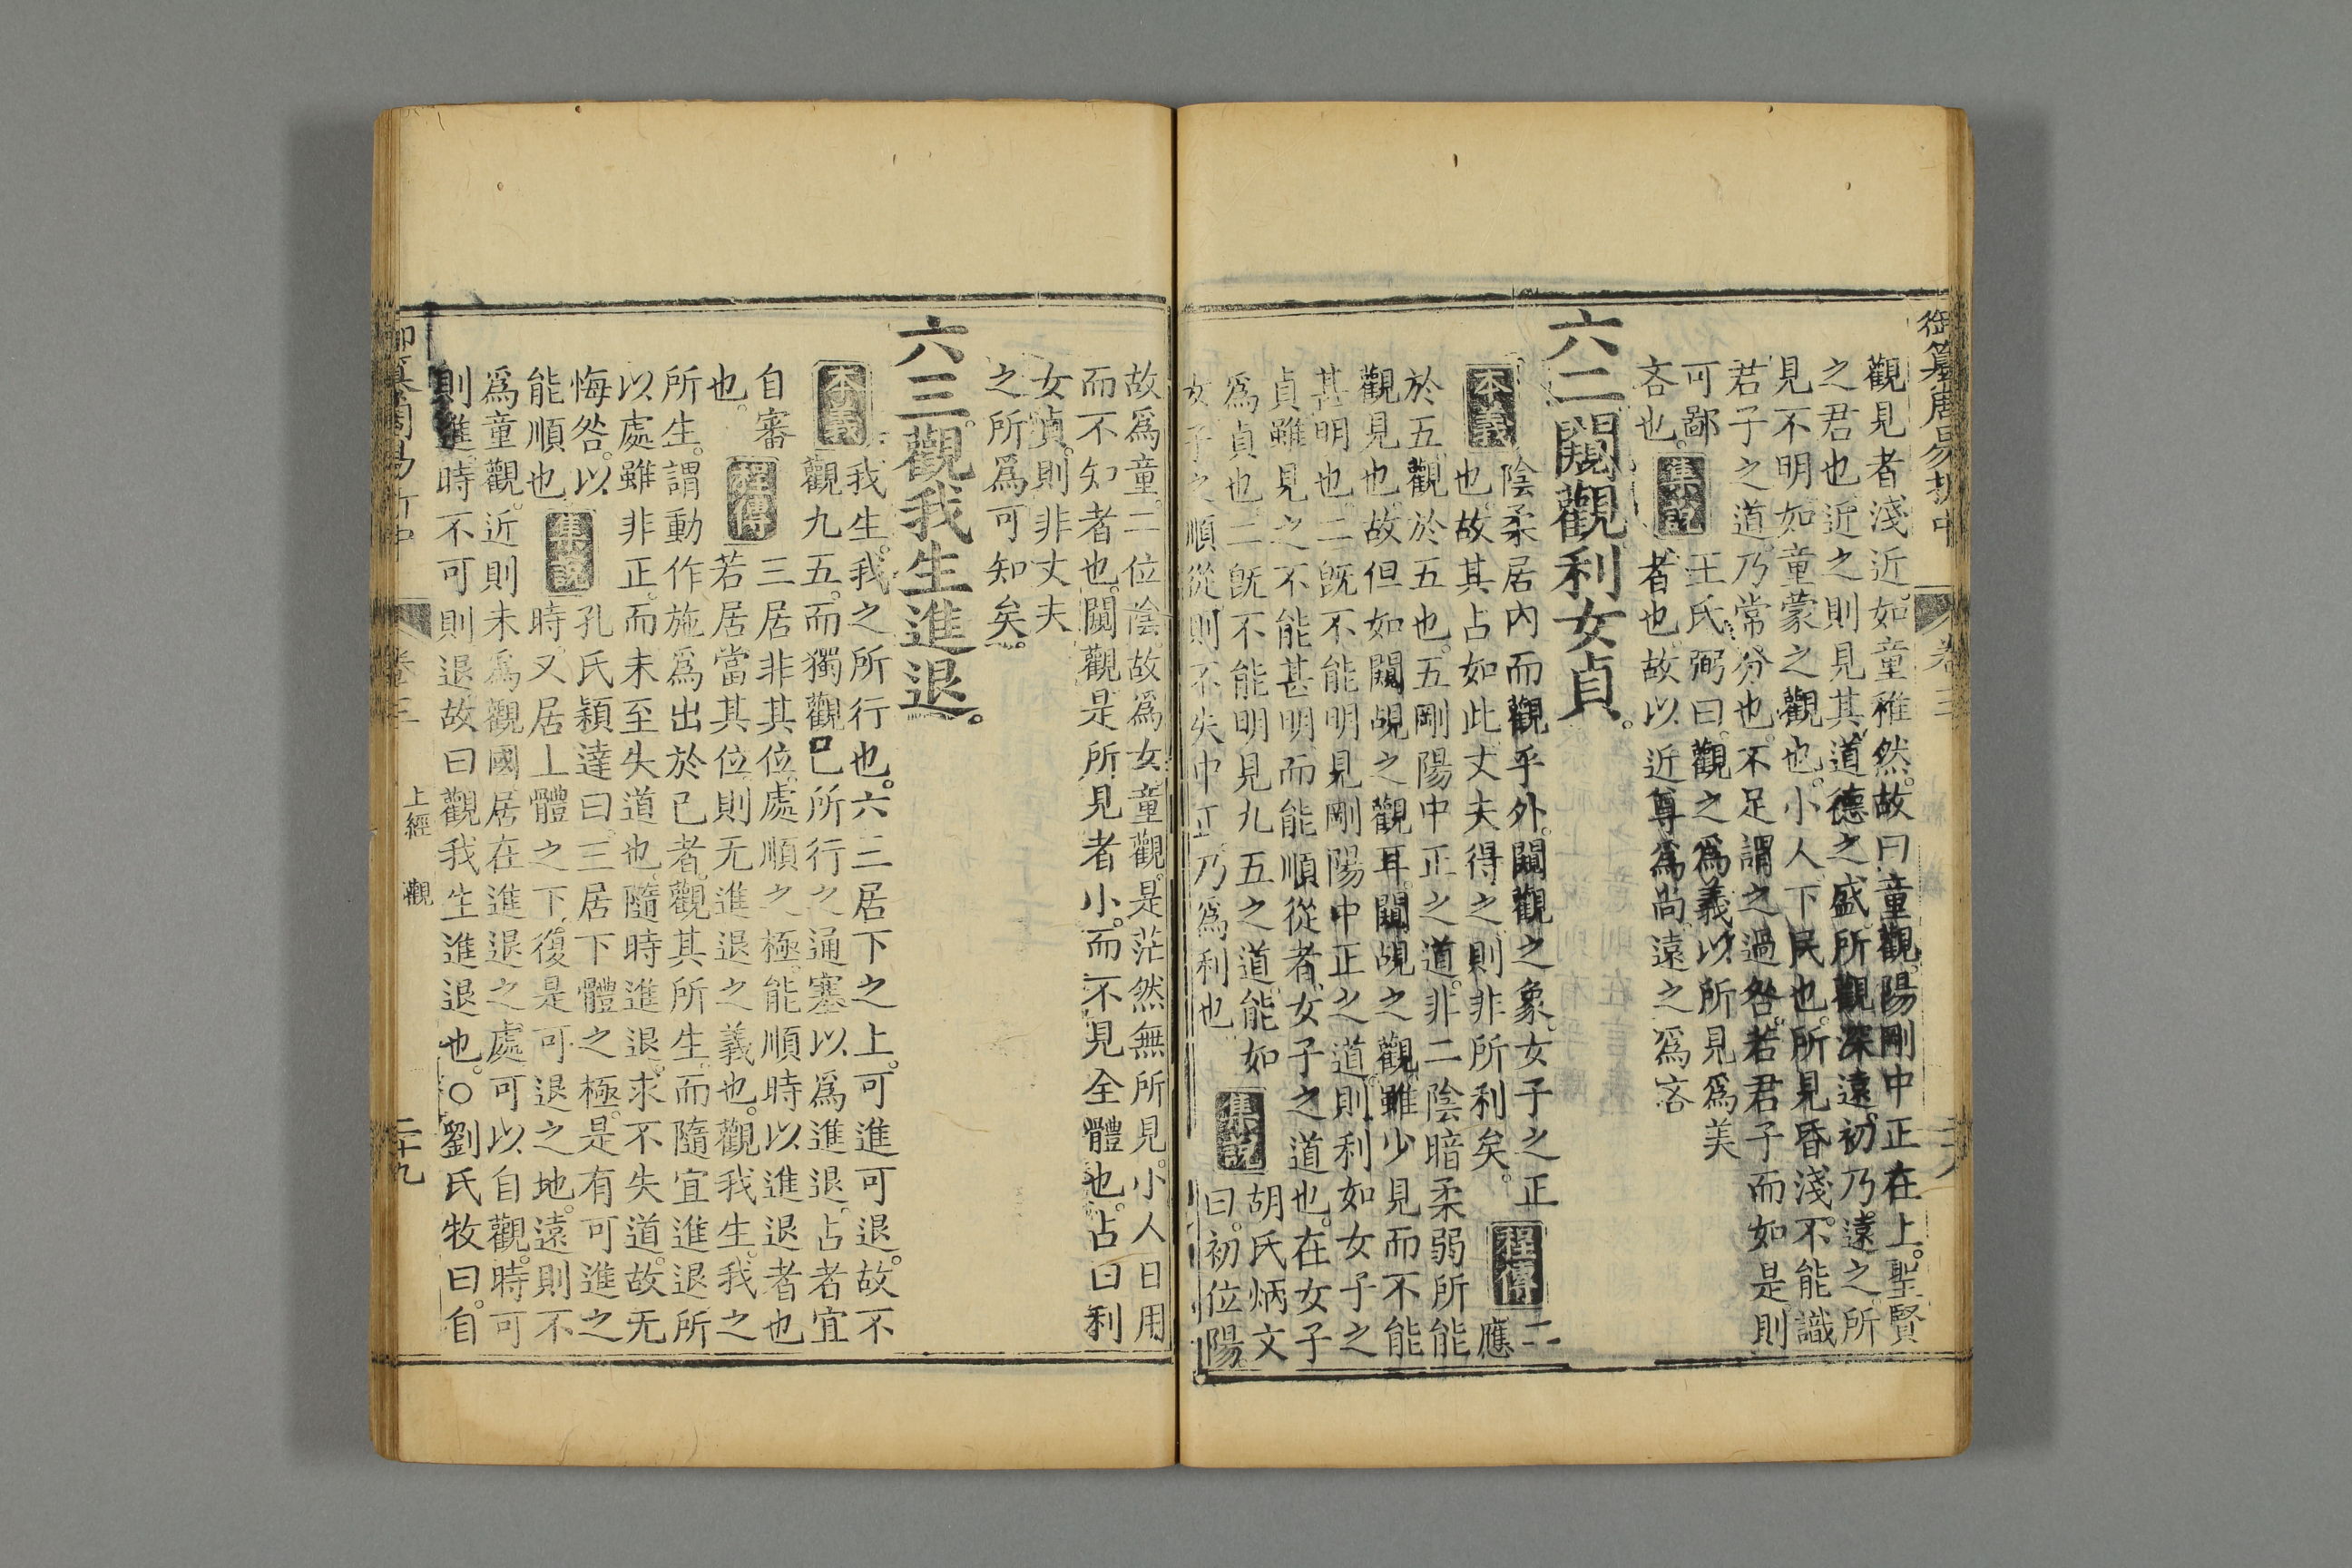 御纂周易折中 卷三 二十八
觀見者淺近。如童稚然。故曰童觀。陽剛中正在上。聖賢
之君也。近之則見其道德之盛。所觀深遠。初乃遠之。所
見不明。如童蒙之觀也。小人。下民也。所見昏淺。不能識
君子之道。乃常分也。不足謂之過咎。若君子而如是。則
可鄙
吝也。
集說
王氏弼曰。觀之爲義。以所見爲美
者也。故以近尊爲尚。遠之爲吝
六二闚觀利女貞。
本義
陰柔居內而觀乎外。闚觀之象。女子之正
也。故其占如此。丈夫得之。則非所利矣。
程傳
二
應
於五。觀於五也。五剛陽中正之道。非二陰暗柔弱所能
觀見也。故但如闚覘之觀耳。闚覘之觀。雖少見而不能
甚明也。二旣不能明見剛陽中正之道。則利如女子之
貞。雖見之不能甚明。而能順從者。女子之道也。在女子
爲貞也。二旣不能明見九五之道。能如
女子之順從。則不失中正。乃爲利也
集說
胡氏炳文
曰。初位陽。
故爲童。二位陰。故爲女。童觀。是茫然無所見。小人日用
而不知者也。闚觀。是所見者小。而不見全體也。占曰利
女貞。則非丈夫
之所爲可知矣。
六三。觀我生進退。
本義
我生。我之所行也。六三居下之上。可進可退。故不
觀九五。而獨觀己所行之通塞以爲進退。占者宜
自審
也。
程傳
三居非其位。處順之極。能順時以進退者也
若居當其位。則无進退之義也。觀我生。我之
所生。謂動作施爲出於己者。觀其所生。而隨宜進退。所
以處雖非正。而未至失道也。隨時進退。求不失道。故无
悔咎。以
能順也
集說
孔氏穎達曰。三居下體之極。是有可進之
時。又居上體之下。復是可退之地。遠則不
爲童觀。近則未爲觀國。居在進退之處。可以自觀。時可
則進。時不可則退。故曰觀我生進退也。○劉氏牧曰。自
御纂周易折中 卷三 上經 觀 二十九